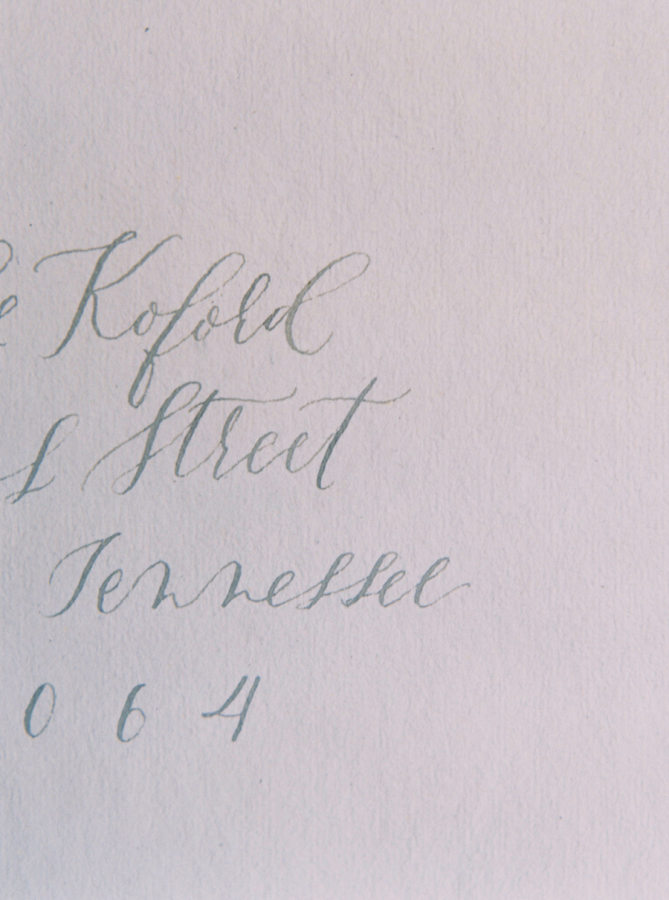 e Koford
s Street
Tennessee
0 6 4